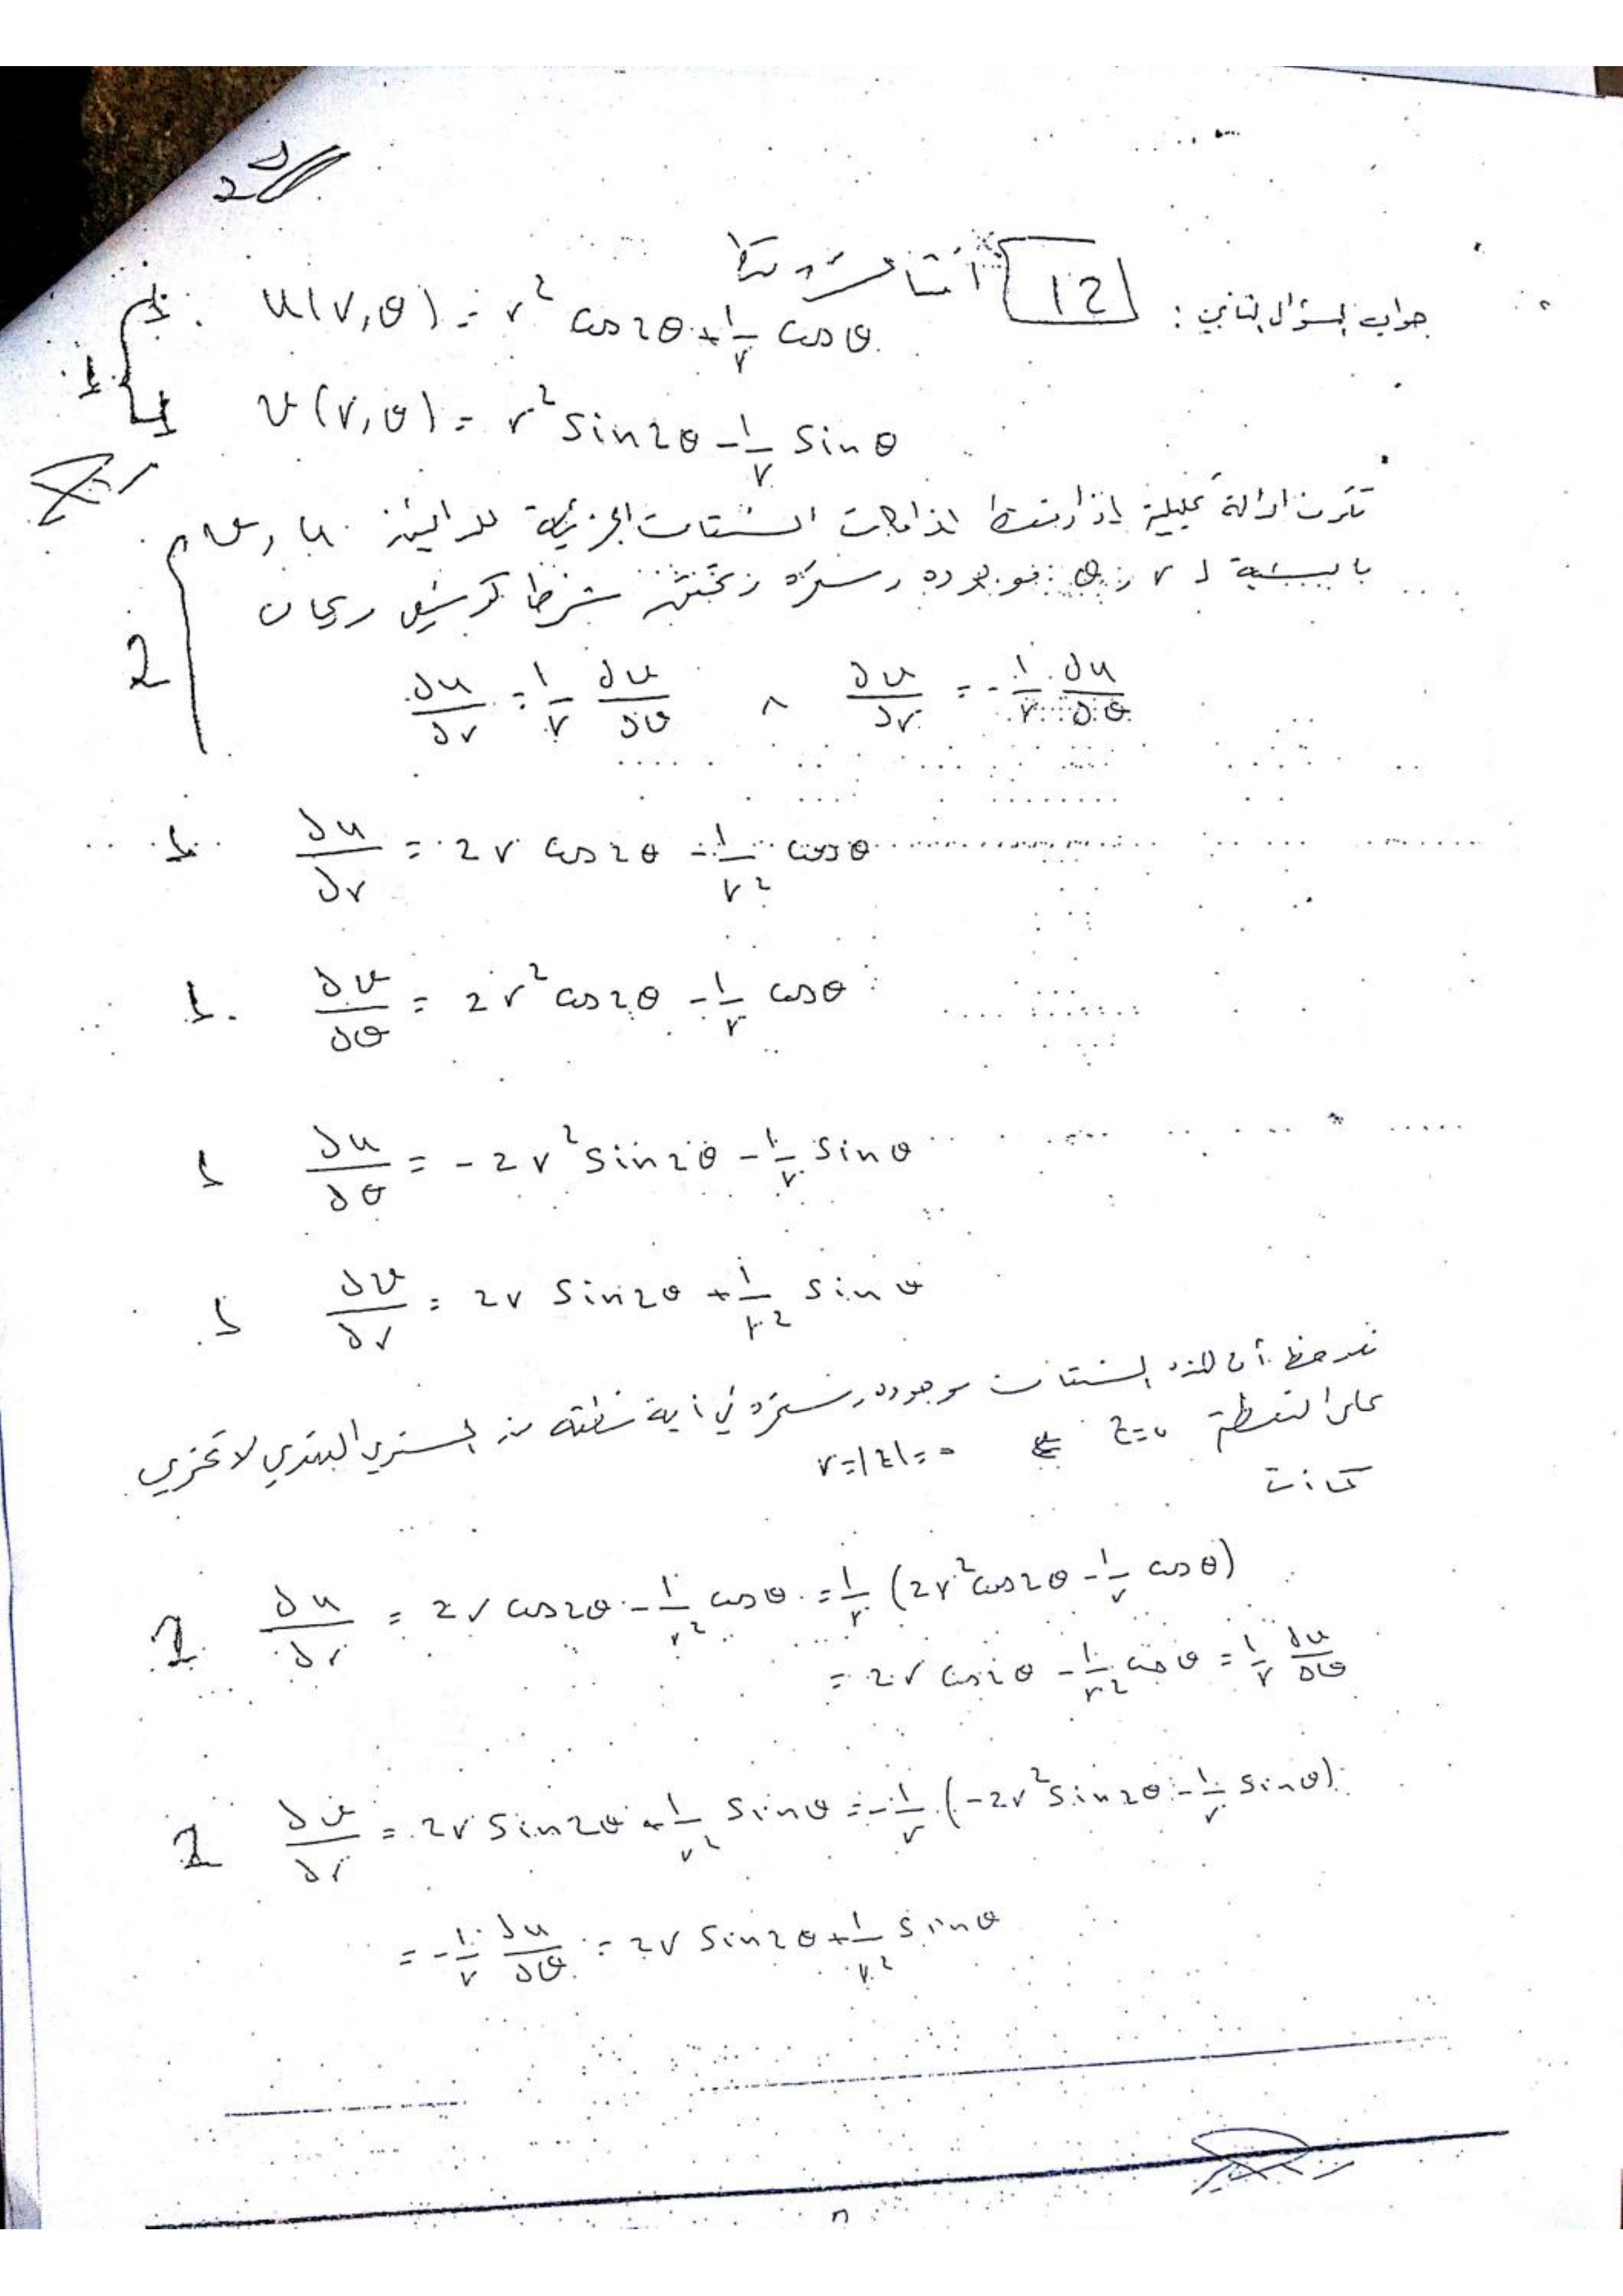 جواب السؤال الثاني : 12 اثنتا عشرة درجة
1 u(r,θ) = r² cos 2θ + 1/r cos θ
1 v(r,θ) = r² sin 2θ - 1/r sin θ
تكون الدالة تحليلية إذا وفقط إذا كانت المشتقات الجزئية للدالتين u , v
بالنسبة لـ r و θ موجودة ومستمرة وتحقق شرطا كوشي ريمان
2 ∂u/∂r = 1/r ∂v/∂θ ∧ ∂v/∂r = - 1/r ∂u/∂θ
1 ∂u/∂r = 2r cos 2θ - 1/r² cos θ
1 ∂v/∂θ = 2r² cos 2θ - 1/r cos θ
1 ∂u/∂θ = -2r² sin 2θ - 1/r sin θ
1 ∂v/∂r = 2r sin 2θ + 1/r² sin θ
نلاحظ أن هذه المشتقات موجودة ومستمرة في أية منطقة من المستوي العقدي لا تحوي
على النقطة z=0 r=|z|=0
كانت
1 ∂u/∂r = 2r cos 2θ - 1/r² cos θ = 1/r (2r² cos 2θ - 1/r cos θ)
= 2r cos 2θ - 1/r² cos θ = 1/r ∂v/∂θ
1 ∂v/∂r = 2r sin 2θ + 1/r² sin θ = - 1/r (-2r² sin 2θ - 1/r sin θ)
= - 1/r ∂u/∂θ = 2r sin 2θ + 1/r² sin θ